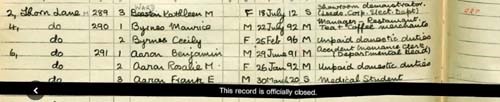 WARD
2, Thorn Lane M 289 3 Beeston Kathleen M F 18 July 12 S Showroom demonstrator. (Leeds. Corp. Elect. Dept)
4, do 290 1 Byrnes Maurice M 22 July 92 M Manager - Restaurant. Tea & Coffee merchants
do 2 Byrnes Cecily F 25 Feb 96 M Unpaid domestic duties
6, do 291 1 Aaron Benjamin M 29 June 91 M Accident Insurance Clerk (Departmental Head)
do 2 Aaron Rosalie M F 26 Jan 92 M Unpaid domestic duties
do 3 Aaron Frank E M 30 March 20 S Medical Student
This record is officially closed.